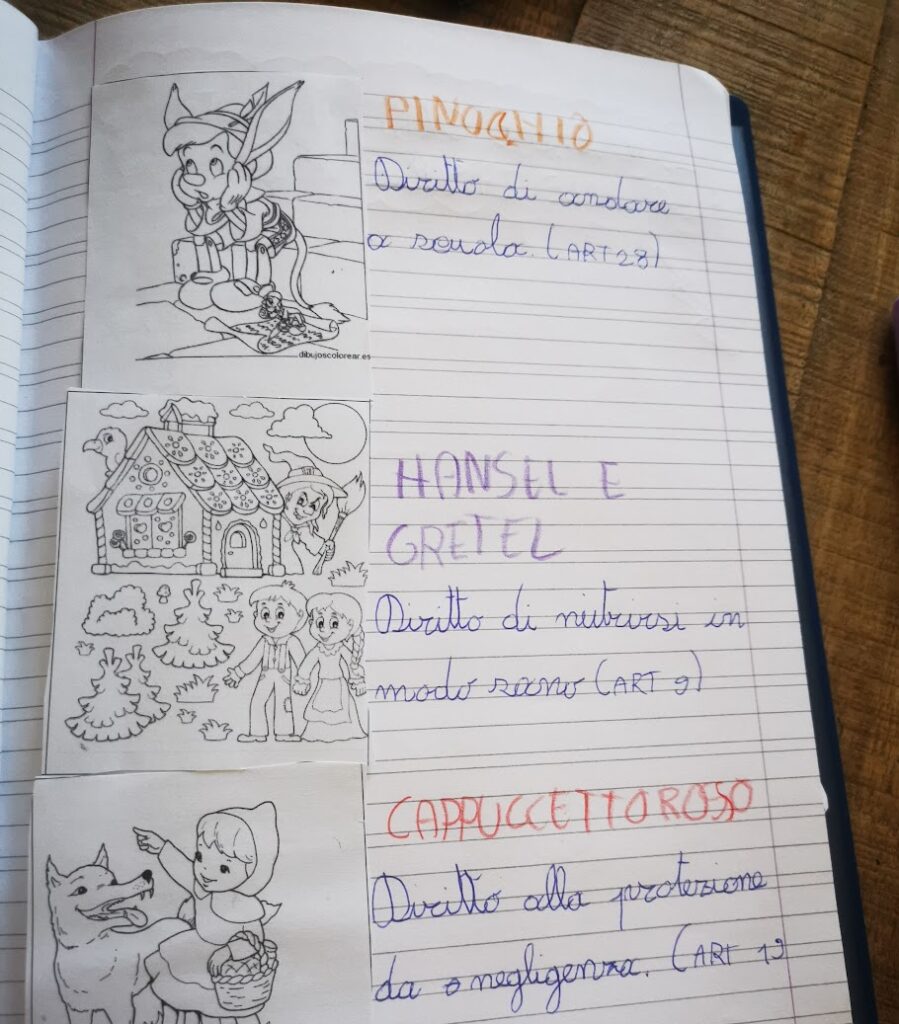 PINOCHIO
Diritto di andare
a scuola. (ART 28)
dibujoscolorear.es
HANSEL E
GRETEL
Diritto di nutrirsi in
modo sano (ART 9)
CAPPUCCETTO ROSSO
Diritto alla protezione
da negligenza. (ART 19